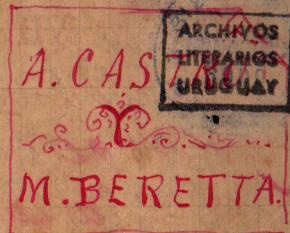 A. CASTRO
ARCHIVOS
LITERARIOS
URUGUAY
Y
M. BERETTA.